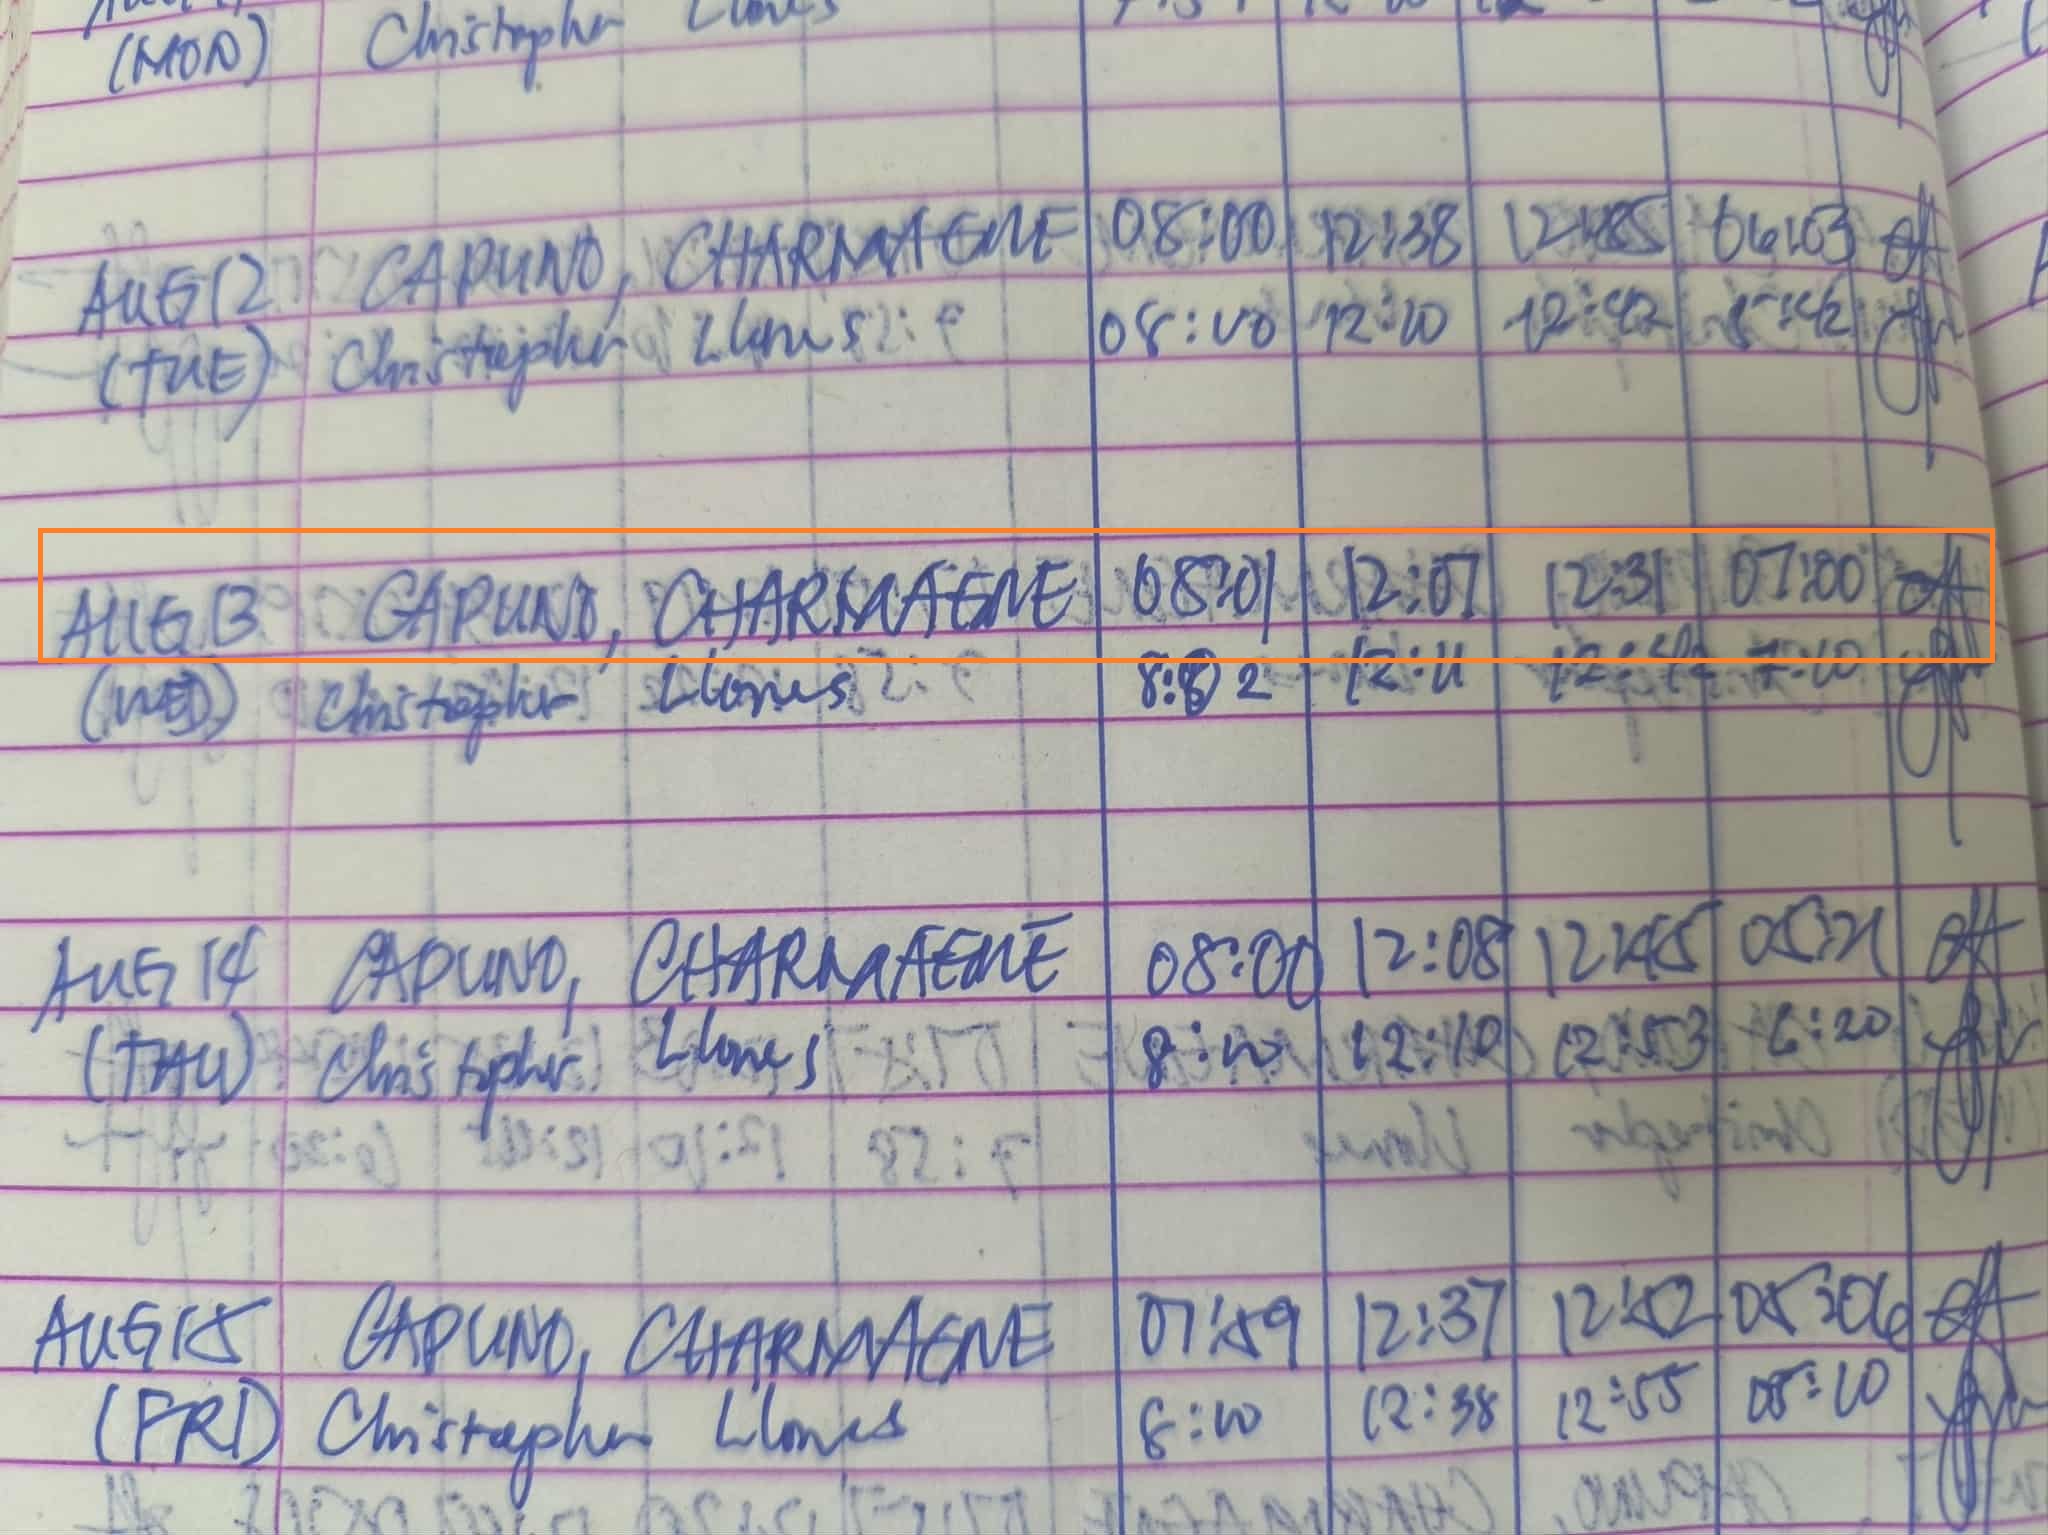 (MON) Christopher Llones
AUG 12 CAPUNO, CHARMAENE 08:00 12:38 12:45 06:03
(TUE) Christopher Llones 08:00 12:10 12:42 5:42
AUG 13 CAPUNO, CHARMAENE 08:01 12:07 12:31 07:00
(WED) Christopher Llones 8:02 12:11 12:42 7:10
AUG 14 CAPUNO, CHARMAENE 08:00 12:08 12:45 05:21
(THU) Christopher Llones 8:10 12:10 12:53 6:20
AUG 15 CAPUNO, CHARMAENE 07:59 12:37 12:52 05:06
(FRI) Christopher Llones 8:10 12:38 12:55 05:10